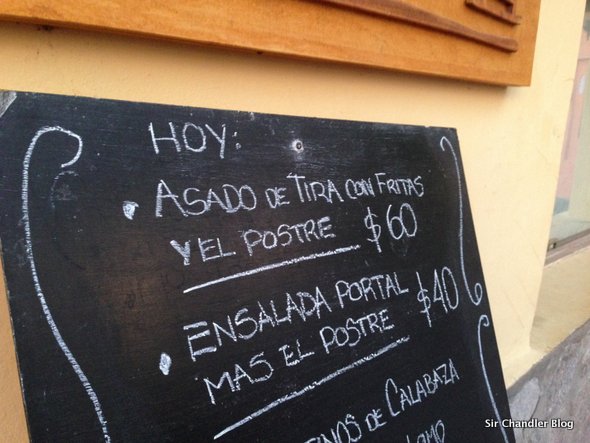 HOY:
• ASADO DE TIRA CON FRITAS
Y EL POSTRE $60
• ENSALADA PORTAL $40
MAS EL POSTRE
DE CALABAZA
Sir Chandler Blog